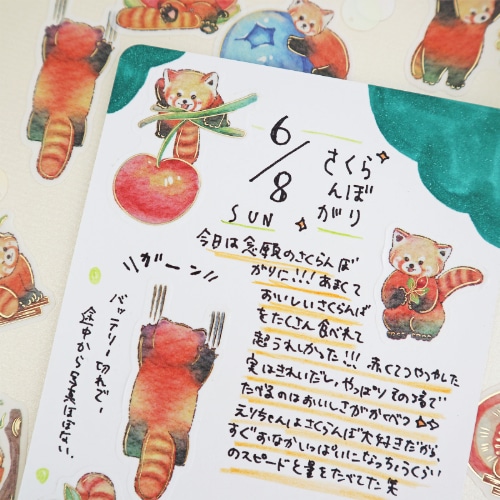 6/8
SUN
さくら
んぼ
がり
今日は念願のさくらんぼ
がりに!!!あまくて
おいしいさくらんぼ
をたくさん食べれて
超うれしかった!!!赤くてつやつやした
実はきれいだし、やっぱりその場で
たべるのはおいしさがかくべつ
えりちゃんはさくらんぼ大好きだから、
すぐおなかいっぱいになっちゃうくらい
のスピードと量をたべてた笑
ガーン
バッテリー切れで、
途中から写真はない